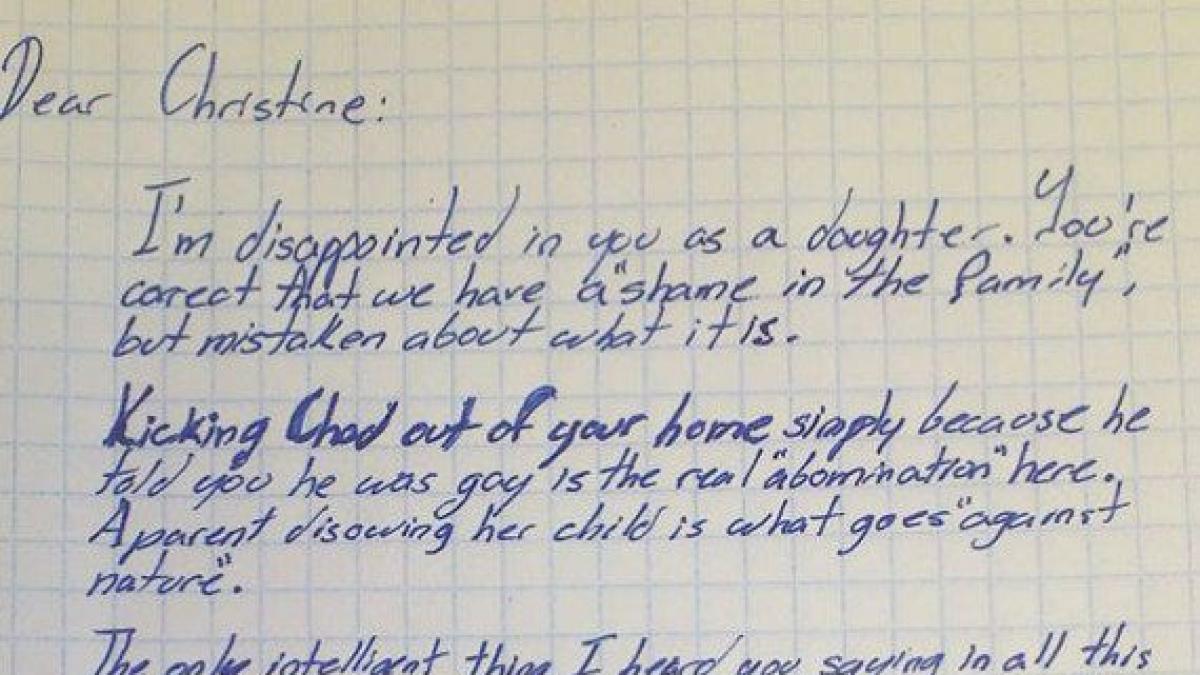 Dear Christine:
I'm disappointed in you as a daughter. You're
correct that we have a "shame in the family",
but mistaken about what it is.
Kicking Chad out of your home simply because he
told you he was gay is the real "abomination" here.
A parent disowing her child is what goes "against
nature".
The only intelligent thing I heard you saying in all this